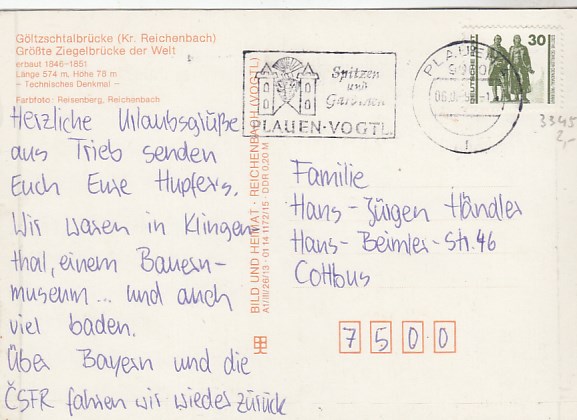 Göltzschtalbrücke (Kr. Reichenbach)
Größte Ziegelbrücke der Welt
erbaut 1846-1851
Länge 574 m, Höhe 78 m
– Technisches Denkmal –
Farbfoto: Reisenberg, Reichenbach
Herzliche Urlaubsgrüße
aus Trieb senden
Euch Eure Hupfers.
Wir waren in Klingen
thal, einem Bauern-
museum... und auch
viel baden.
Über Bayern und die
ČSFR fahren wir wieder zurück
BILD UND HEIMAT · REICHENBACH (VOGTL)
A1/III/26/13 · 01 14 11 72/15 · DDR 0,20 M
Spitzen
und
Gardinen
PLAUEN-VOGTL.
PLAUEN
30
DEUTSCHE POST
3345
2,-
Familie
Hans-Jürgen Händler
Hans-Beimler-Str. 46
Cottbus
7500